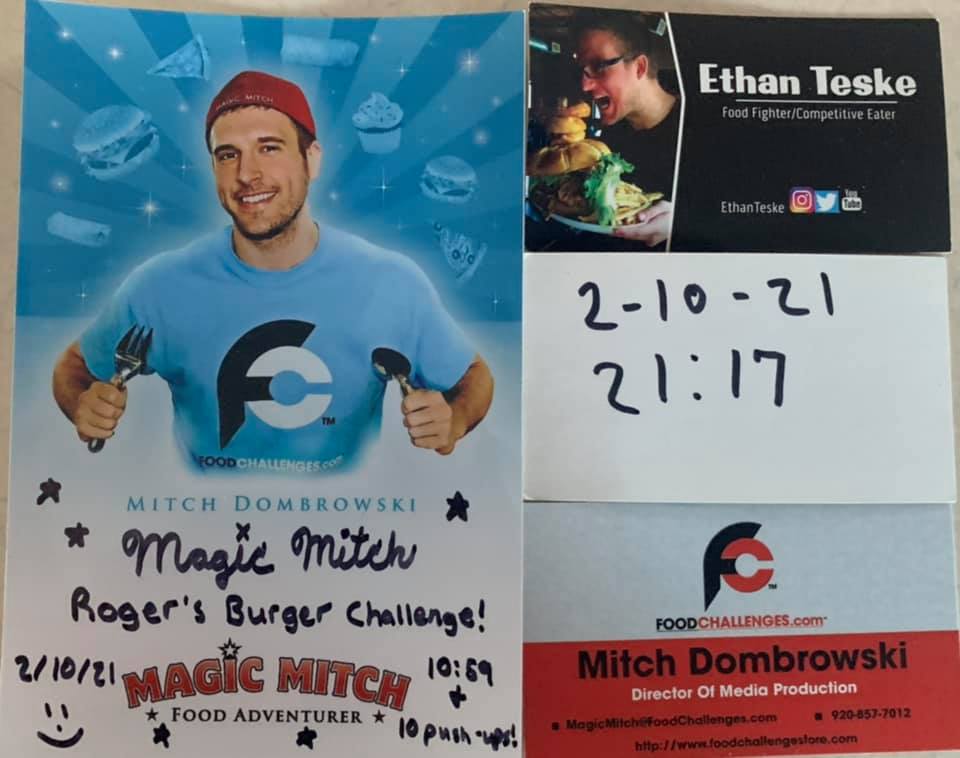 MAGIC MITCH
FC
TM
FOODCHALLENGES.com
MITCH DOMBROWSKI
Magic Mitch
Roger's Burger Challenge!
2/10/21
MAGIC MITCH
FOOD ADVENTURER
10:59
+
10 push-ups!
Ethan Teske
Food Fighter/Competitive Eater
EthanTeske
You
Tube
2-10-21
21:17
FC
TM
FOODCHALLENGES.com
Mitch Dombrowski
Director Of Media Production
MagicMitch@FoodChallenges.com 920-857-7012
http://www.foodchallengestore.com